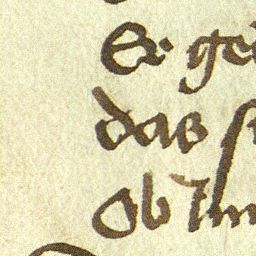 Er ge
das
Ob im